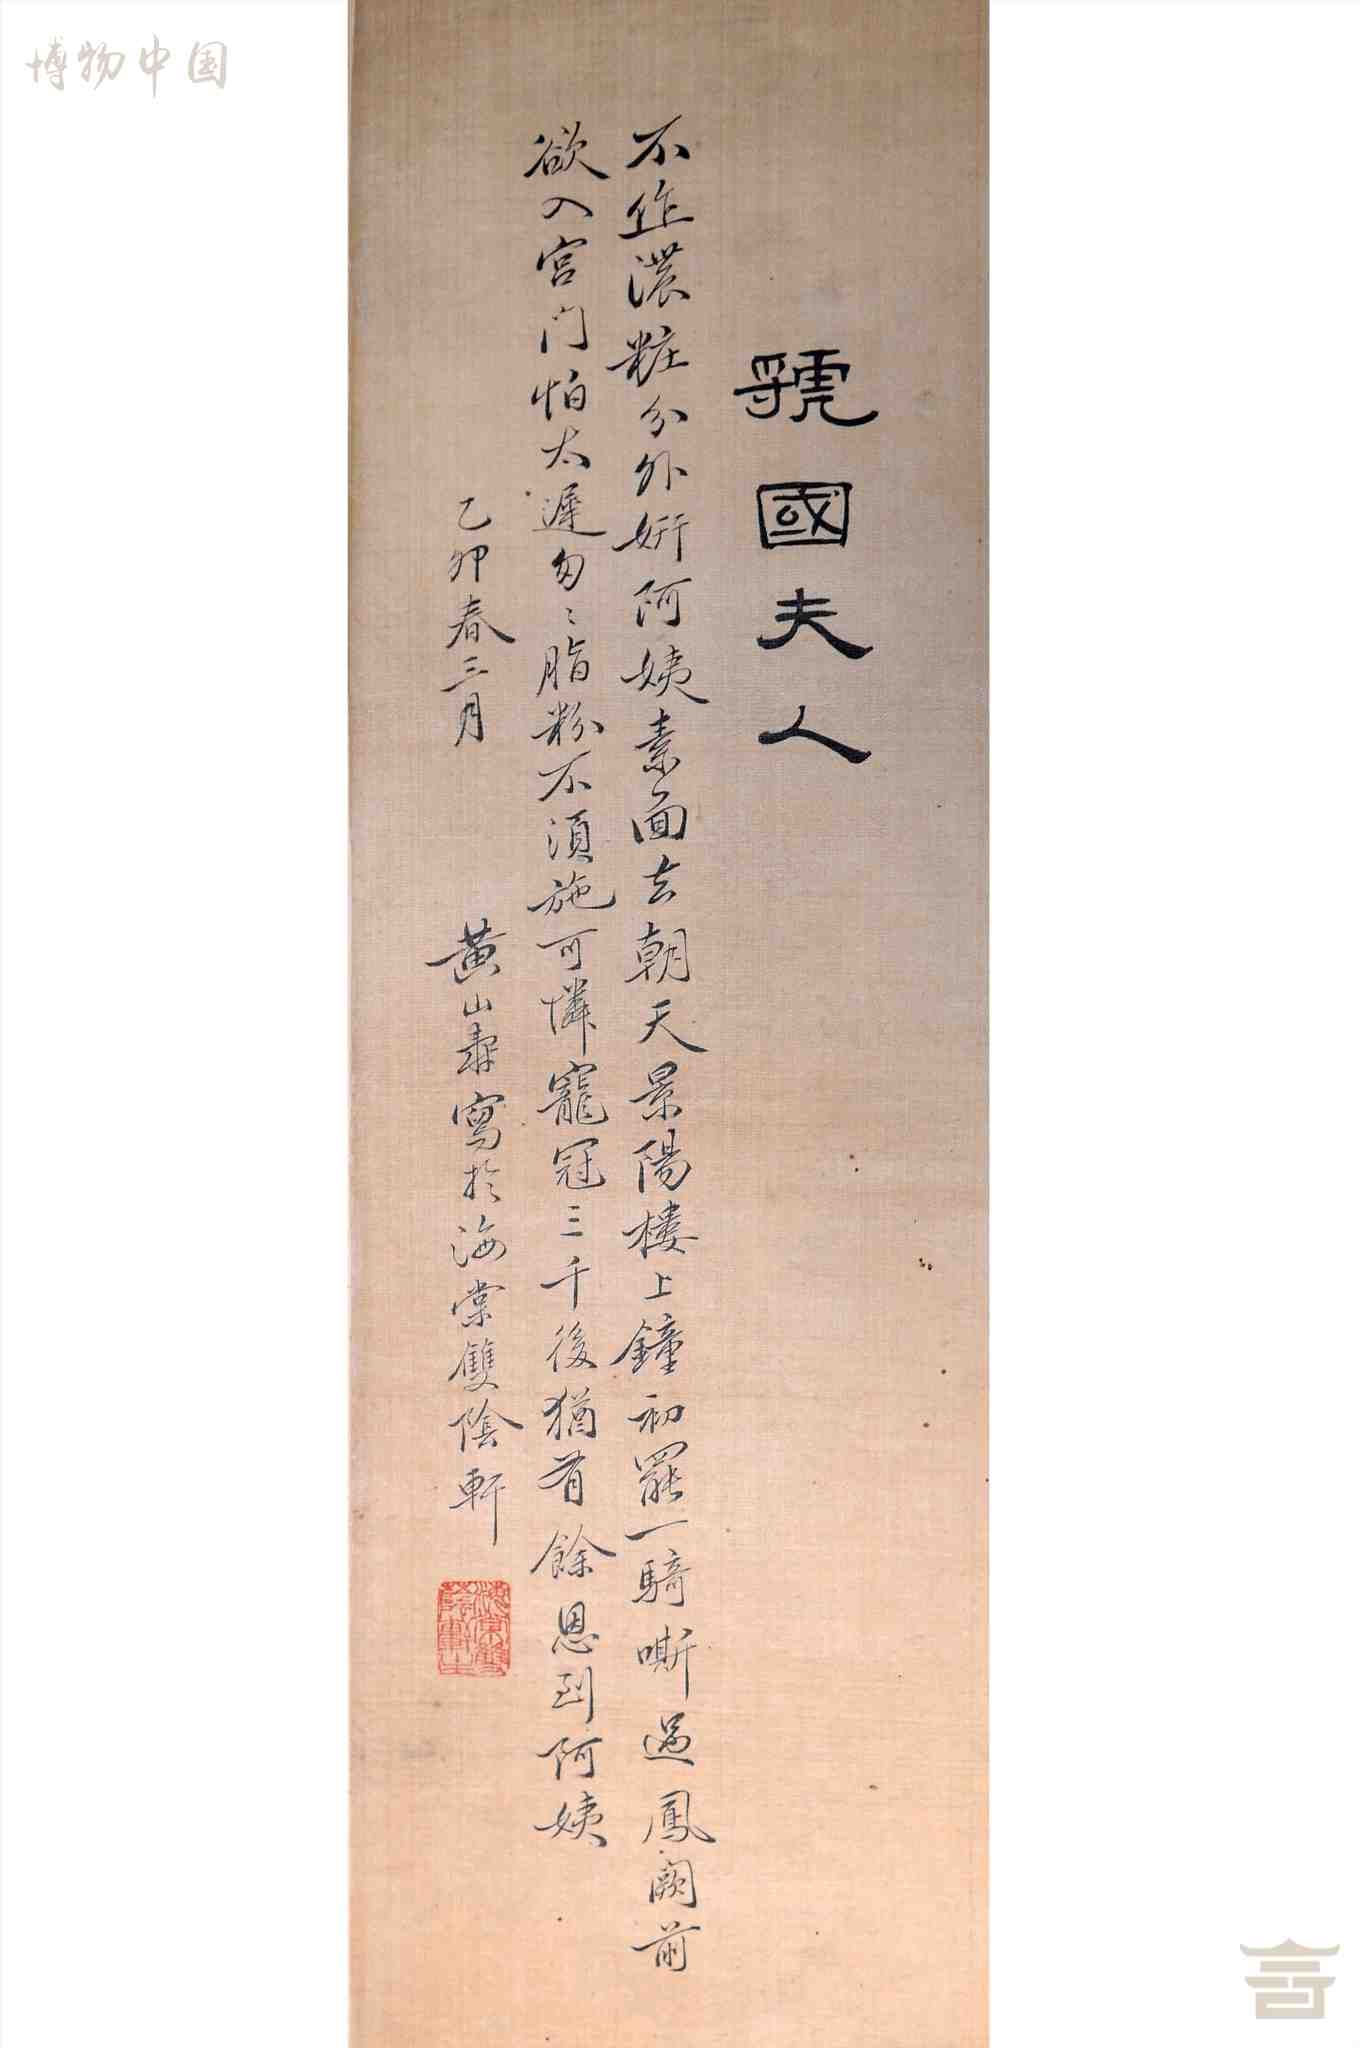 博物中国
虢國夫人
不作濃粧分外妍阿姨素面去朝天景陽樓上鐘初罷一騎嘶過鳳闕前
欲入宮門怕太遲匆〻脂粉不須施可憐寵冠三千後猶有餘恩到阿姨
乙卯春三月 黃山壽寫於海棠雙陰軒